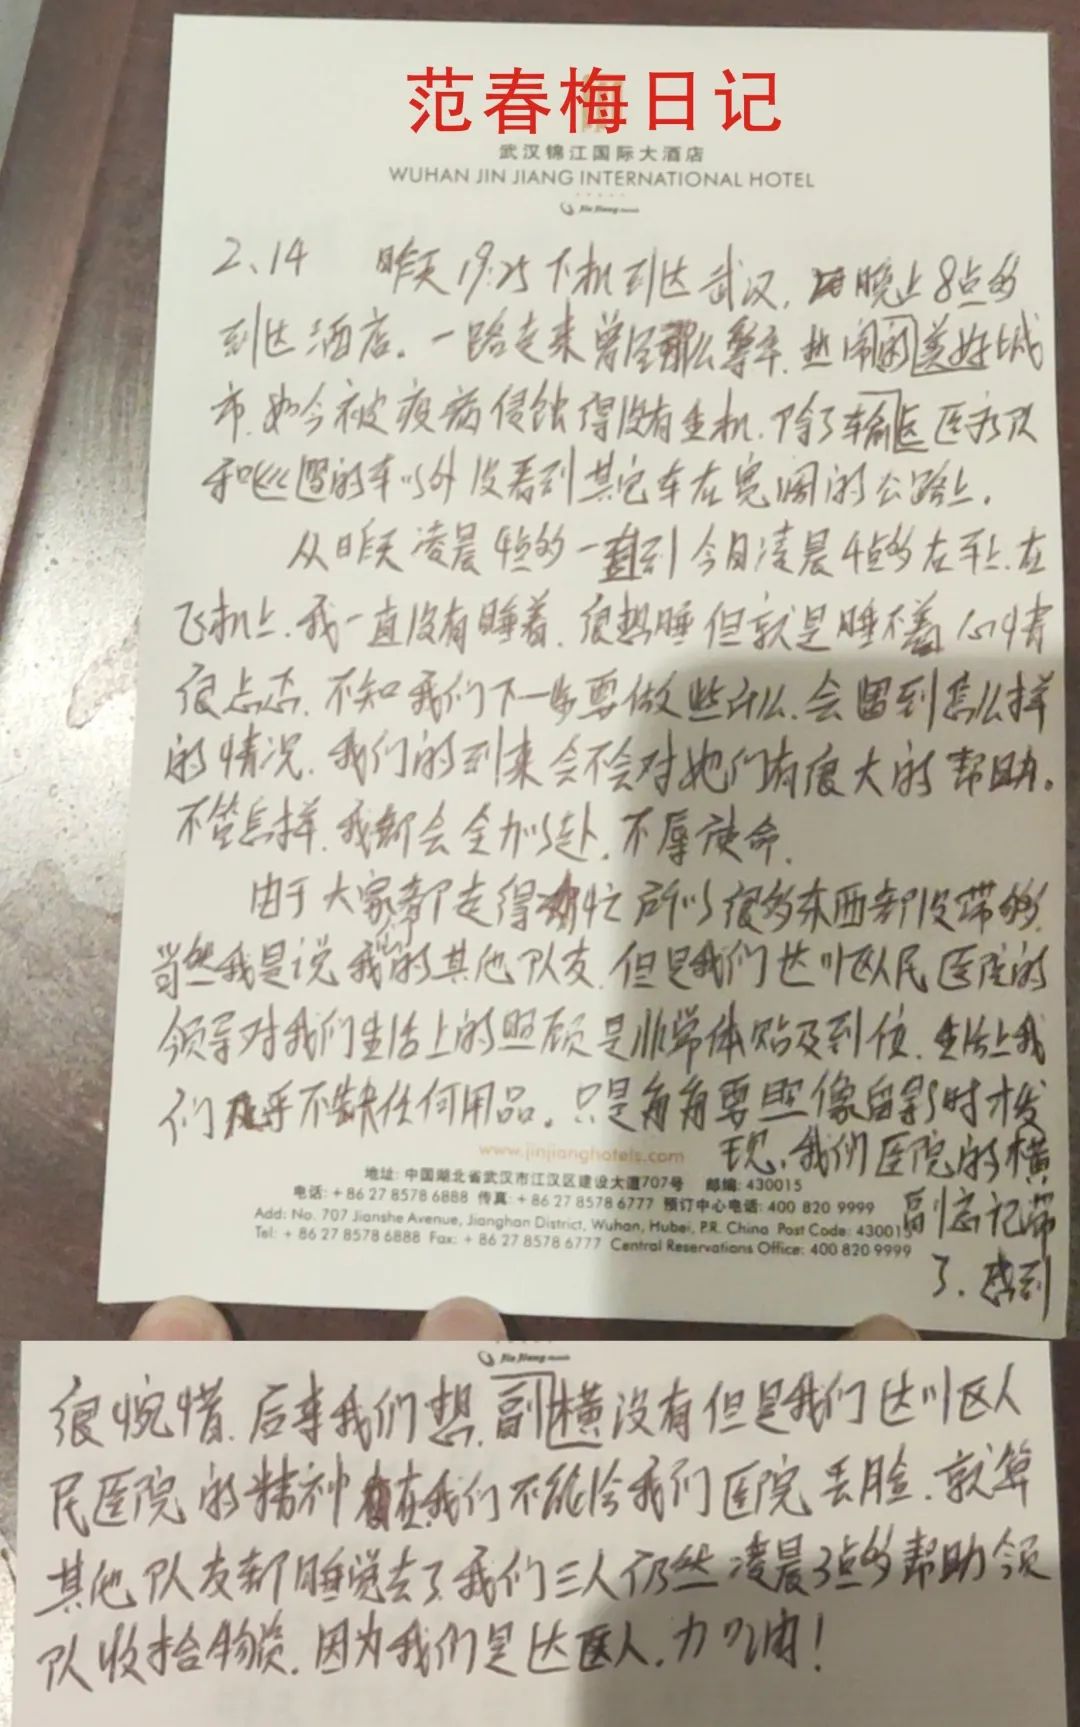 范春梅日记
武汉锦江国际大酒店
WUHAN JIN JIANG INTERNATIONAL HOTEL
Jin Jiang Hotels
2、14 昨天19:25下机到达武汉,晚上8点多
到达酒店。一路走来曾经那么繁华、热闹的美好城
市,如今被疫病侵蚀得没有生机,除了运输医疗队
和巡逻的车以外没看到其它车在宽阔的公路上。
从昨天凌晨4点多一直到今日凌晨4点多在车上、在
飞机上、我一直没有睡着、很想睡但就是睡不着,心情
很忐忑、不知我们下一步要做些什么、会遇到怎么样
的情况、我们的到来会不会对她们有很大的帮助。
不管怎样,我都会全力以赴,不辱使命。
由于大家都走得匆忙所以很多东西都没带够,
当然我是说我们的其他队友,但是我们达川区人民医院的
领导对我们生活上的照顾是非常体贴及到位,生活上我
们几乎不缺任何用品。只是每每要照像留影时才发
现,我们医院的横
副忘记带
了,感到
www.jinjianghotels.com
地址: 中国湖北省武汉市江汉区建设大道707号 邮编: 430015
电话: + 86 27 8578 6888 传真: + 86 27 8578 6777 预订中心电话: 400 820 9999
Add: No. 707 Jianshe Avenue, Jianghan District, Wuhan, Hubei, P.R. China Post Code: 430015
Tel: + 86 27 8578 6888 Fax: + 86 27 8578 6777 Central Reservations Office: 400 820 9999
Jin Jiang Hotels
很惋惜,后来我们想,横副没有但是我们达川区人
民医院的精神在,我们不能给我们医院丢脸,就算
其他队友都睡觉去了,我们三人仍然凌晨3点多帮助领
队收拾物资,因为我们是达医人,加油!